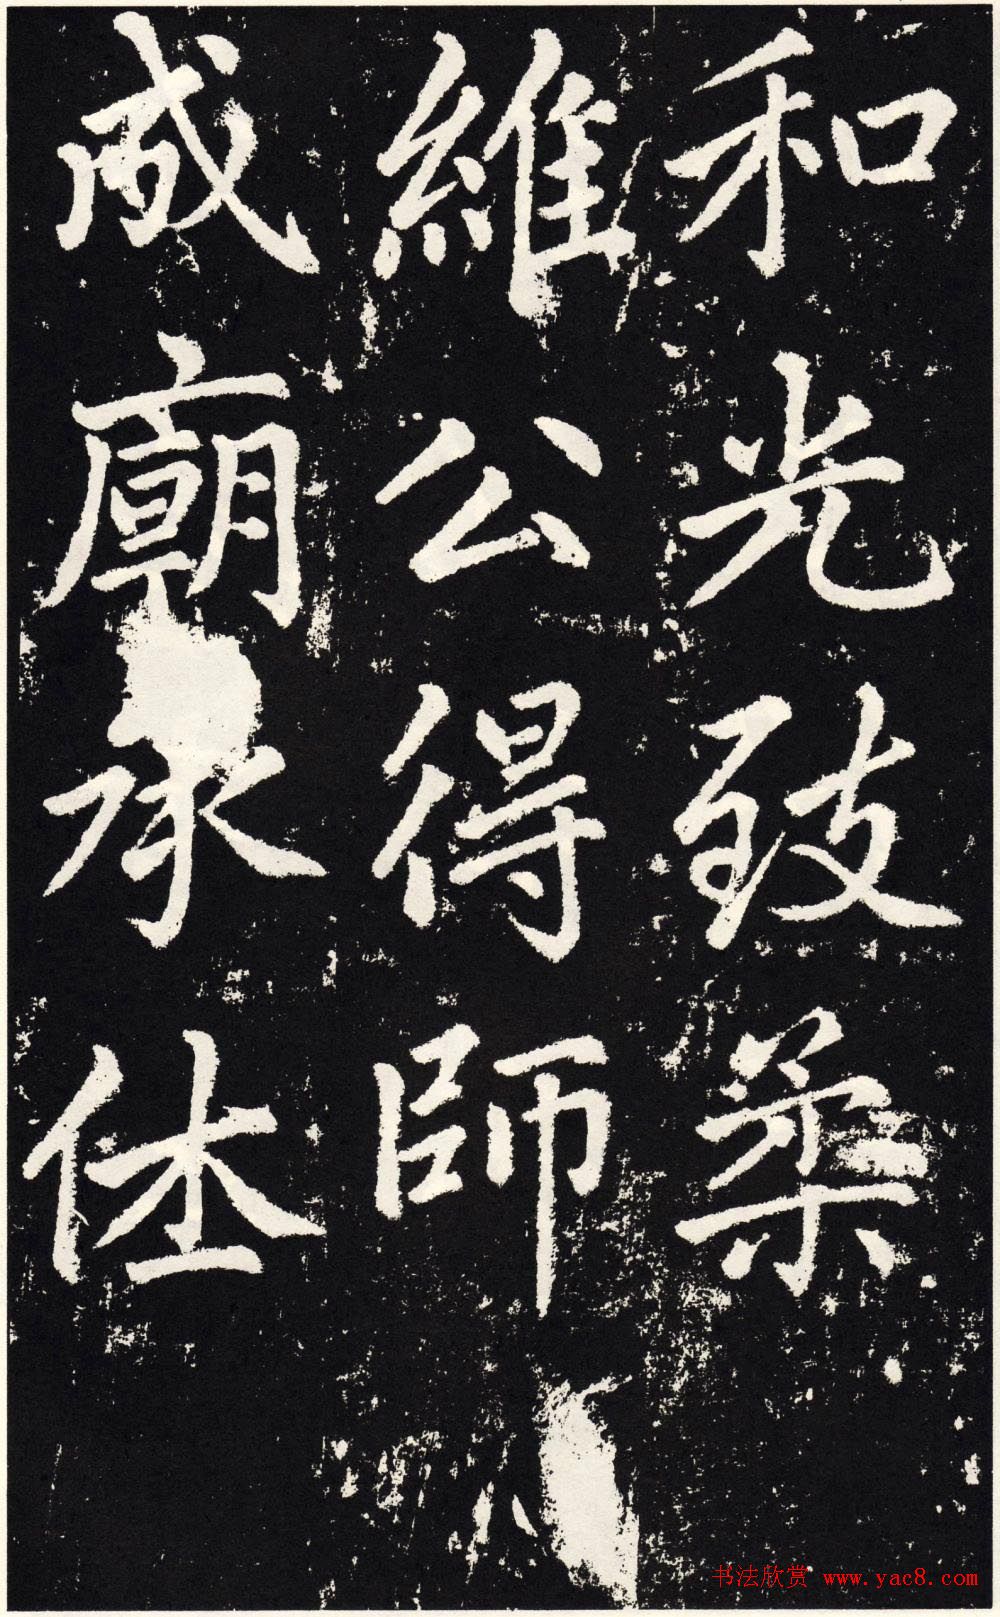 和光致柔
維公得師
成廟承休
书法欣赏 www.yac8.com